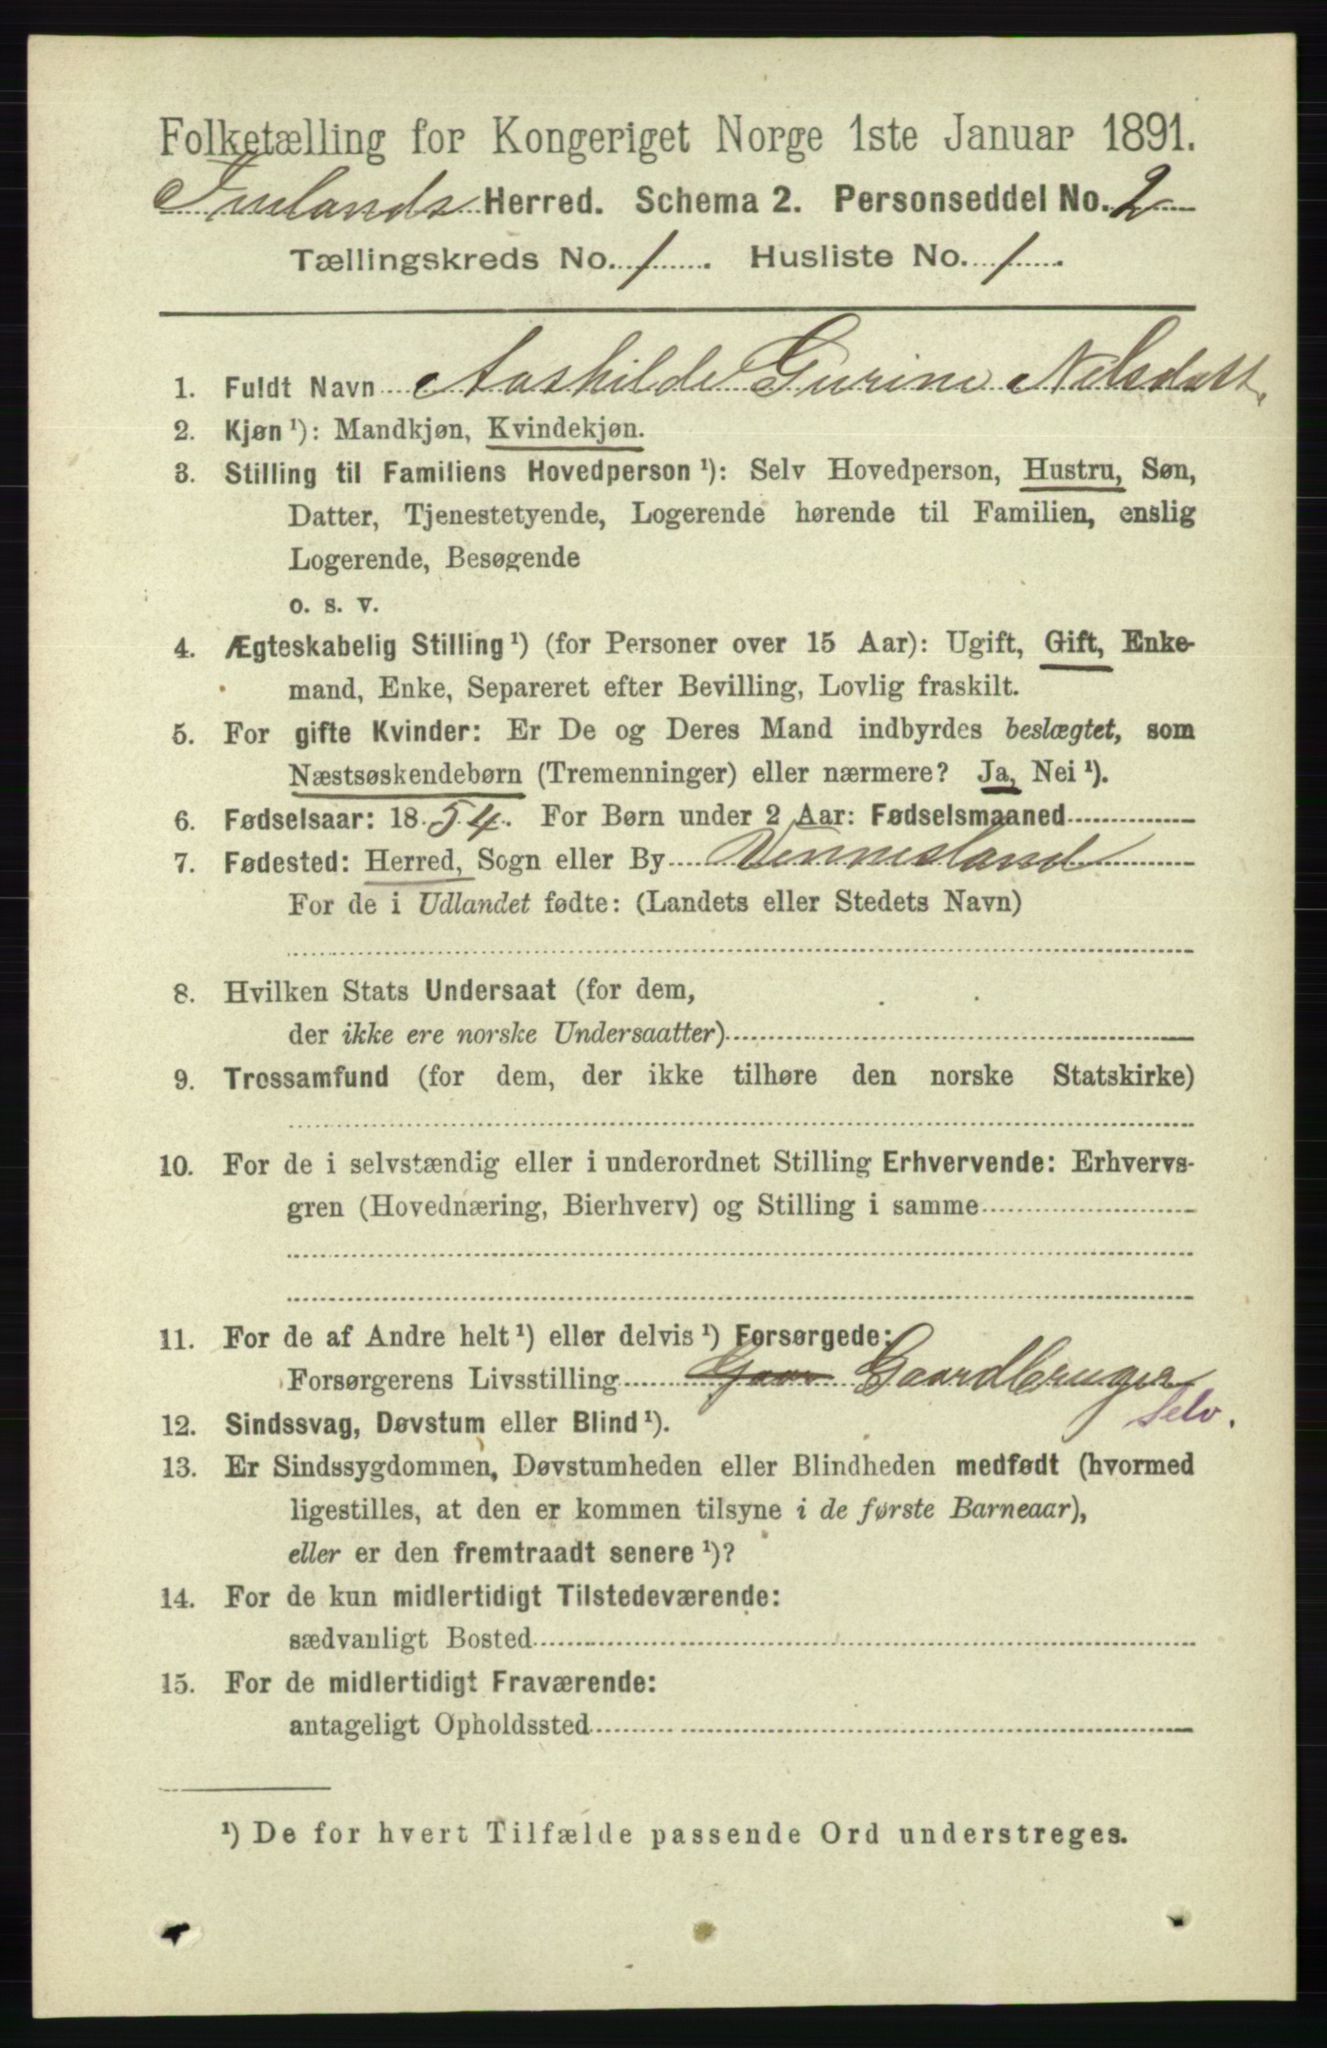 Folketælling for Kongeriget Norge 1ste Januar 1891.
Iveslands Herred. Schema 2. Personseddel No. 2
Tællingskreds No. 1. Husliste No. 1.
1. Fuldt Navn Aashilde Gurine Nelsdatt.
2. Kjøn ¹): Mandkjøn, Kvindekjøn.
3. Stilling til Familiens Hovedperson ¹): Selv Hovedperson, Hustru, Søn,
Datter, Tjenestetyende, Logerende hørende til Familien, enslig
Logerende, Besøgende
o. s. v.
4. Ægteskabelig Stilling ¹) (for Personer over 15 Aar): Ugift, Gift, Enke-
mand, Enke, Separeret efter Bevilling, Lovlig fraskilt.
5. For gifte Kvinder: Er De og Deres Mand indbyrdes beslægtet, som
Næstsøskendebørn (Tremenninger) eller nærmere? Ja, Nei ¹).
6. Fødselsaar: 1854. For Børn under 2 Aar: Fødselsmaaned
7. Fødested: Herred, Sogn eller By Vennesland
For de i Udlandet fødte: (Landets eller Stedets Navn)
8. Hvilken Stats Undersaat (for dem,
der ikke ere norske Undersaatter)
9. Trossamfund (for dem, der ikke tilhøre den norske Statskirke)
10. For de i selvstændig eller i underordnet Stilling Erhvervende: Erhvervs-
gren (Hovednæring, Bierhverv) og Stilling i samme
11. For de af Andre helt ¹) eller delvis ¹) Forsørgede:
Forsørgerens Livsstilling Gaar Gaardbruger
Selv.
12. Sindssvag, Døvstum eller Blind ¹).
13. Er Sindssygdommen, Døvstumheden eller Blindheden medfødt (hvormed
ligestilles, at den er kommen tilsyne i de første Barneaar),
eller er den fremtraadt senere ¹)?
14. For de kun midlertidigt Tilstedeværende:
sædvanligt Bosted
15. For de midlertidigt Fraværende:
antageligt Opholdssted
¹) De for hvert Tilfælde passende Ord understreges.